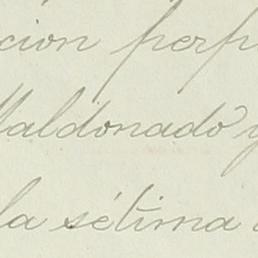 cion perp
Maldonado y
la sétima